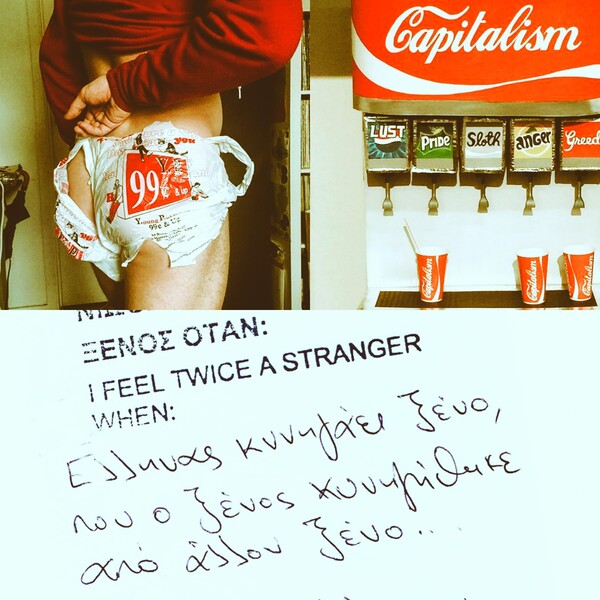 99¢
& UP
Young
99¢ & Up
Capitalism
LUST Pride Sloth anger Greed
Capitalism Capitalism Capitalism
ΞΕΝΟΣ ΟΤΑΝ:
I FEEL TWICE A STRANGER
WHEN:
Ελληνας κυνηγάει ξένο,
που ο ξένος κυνηγήθηκε
από άλλον ξένο...